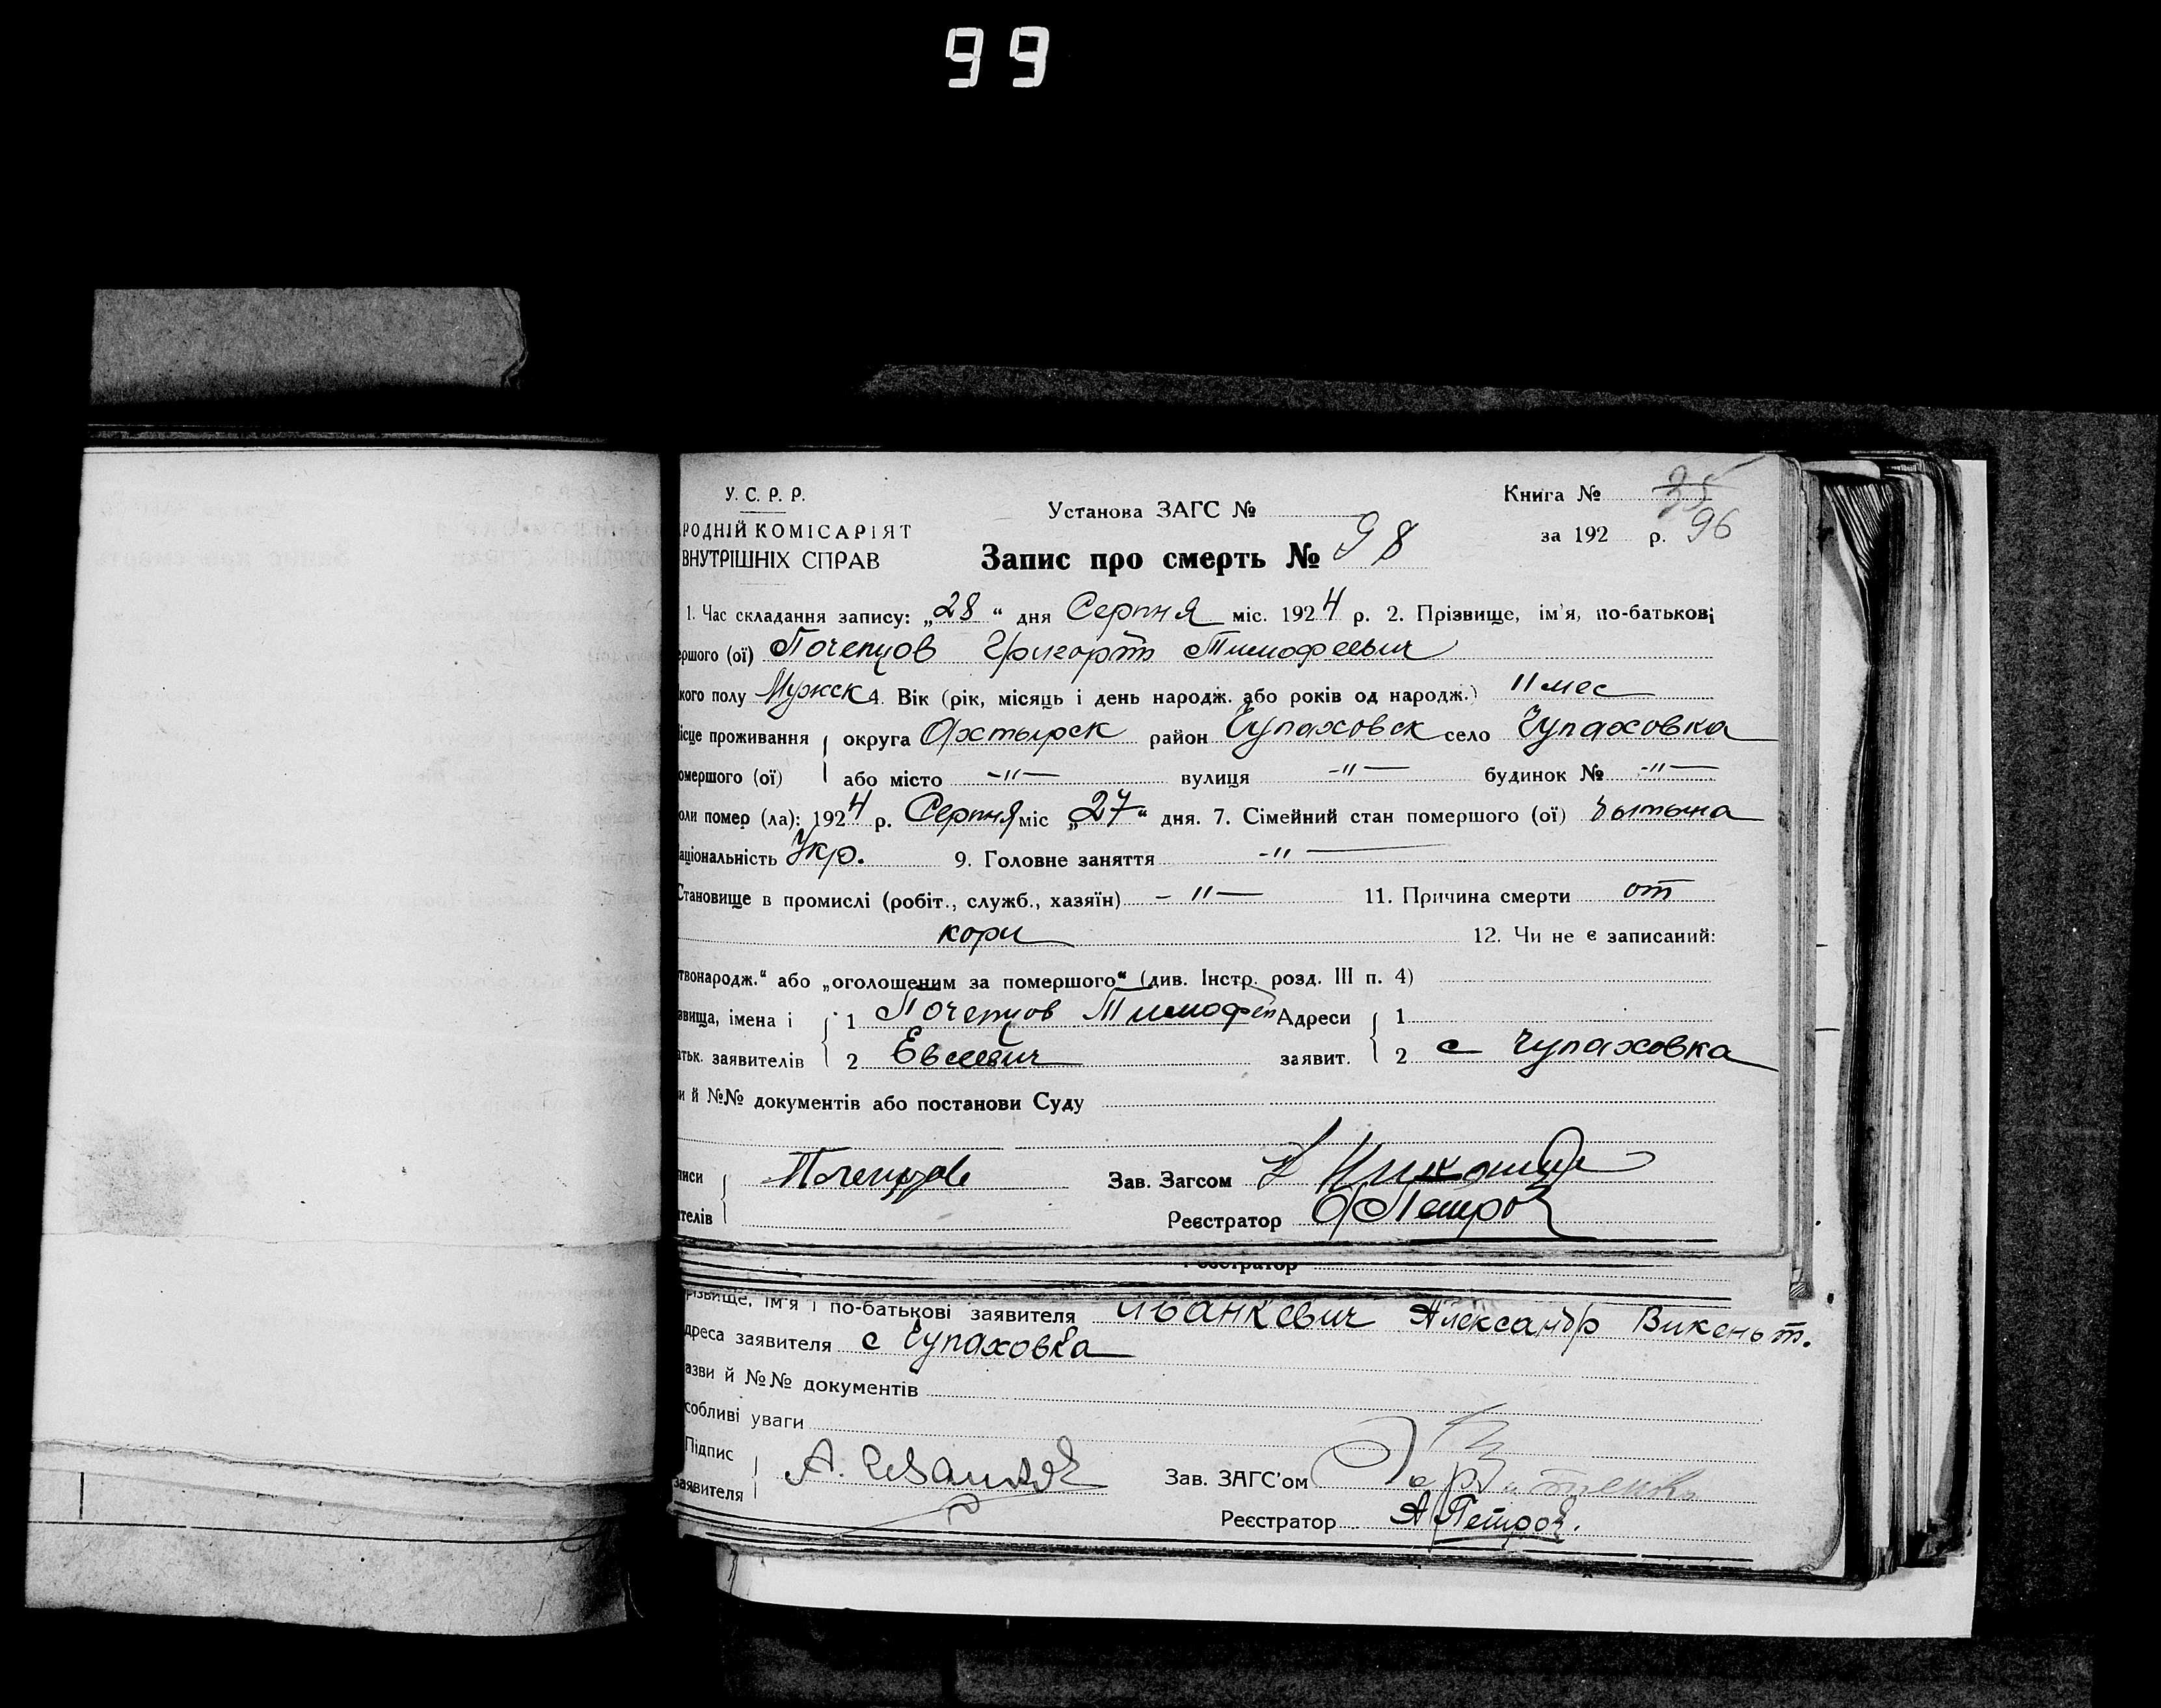 99
У. С. Р. Р.
Установа ЗАГС №
Книга № 35
РОДНІЙ КОМІСАРІЯТ
за 192 р. 96
ВНУТРІШНІХ СПРАВ
Запис про смерть № 98
1. Час складання запису: „28“ дня Серпня міс. 1924 р. 2. Прізвище, ім'я, по-батькові
ершого (ої) Почепцов Григорій Тимофеевич
кого полу Мужск 4. Вік (рік, місяць і день народж. або років од народж.) 11 мес
ісце проживання округа Охтырск район Чупаховск село Чупаховка
омершого (ої) або місто -"- вулиця -"- будинок № -"-
оли помер (ла): 1924 р. Серпня міс „27“ дня. 7. Сімейний стан помершого (ої)
аціональність Укр. 9. Головне заняття -"-
Становище в промислі (робіт., служб., хазяїн) -"- 11. Причина смерти от
кори 12. Чи не є записаний:
твонародж.“ або „оголошеним за помершого“ (див. Інстр. розд. III п. 4)
звища, імена і 1 Почепцов Тимофей Адреси 1
атьк. заявителів 2 Евсеевич заявит. 2 с Чупаховка
и й №№ документів або постанови Суду
писи Почепцов Зав. Загсом
ителів Реєстратор Петров
Реєстратор
різвище, ім'я і по-батькові заявителя Иванкевич Александр Викент.
дреса заявителя с Чупаховка
азви й №№ документів
собливі уваги
Підпис А. Иванкев Зав. ЗАГС'ом
заявителя
Реєстратор А Петров.